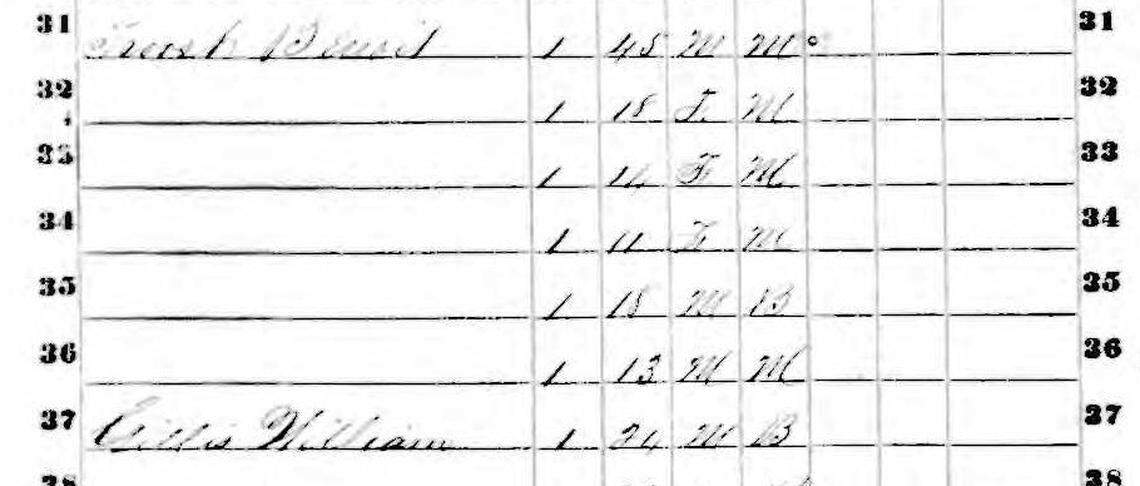 31 1 45 M M 31
32 1 18 F. M 32
33 1 F M 33
34 1 11 F M 34
35 1 18 M B 35
36 1 13 M M 36
37 Gillis William 1 24 M B 37
38 38